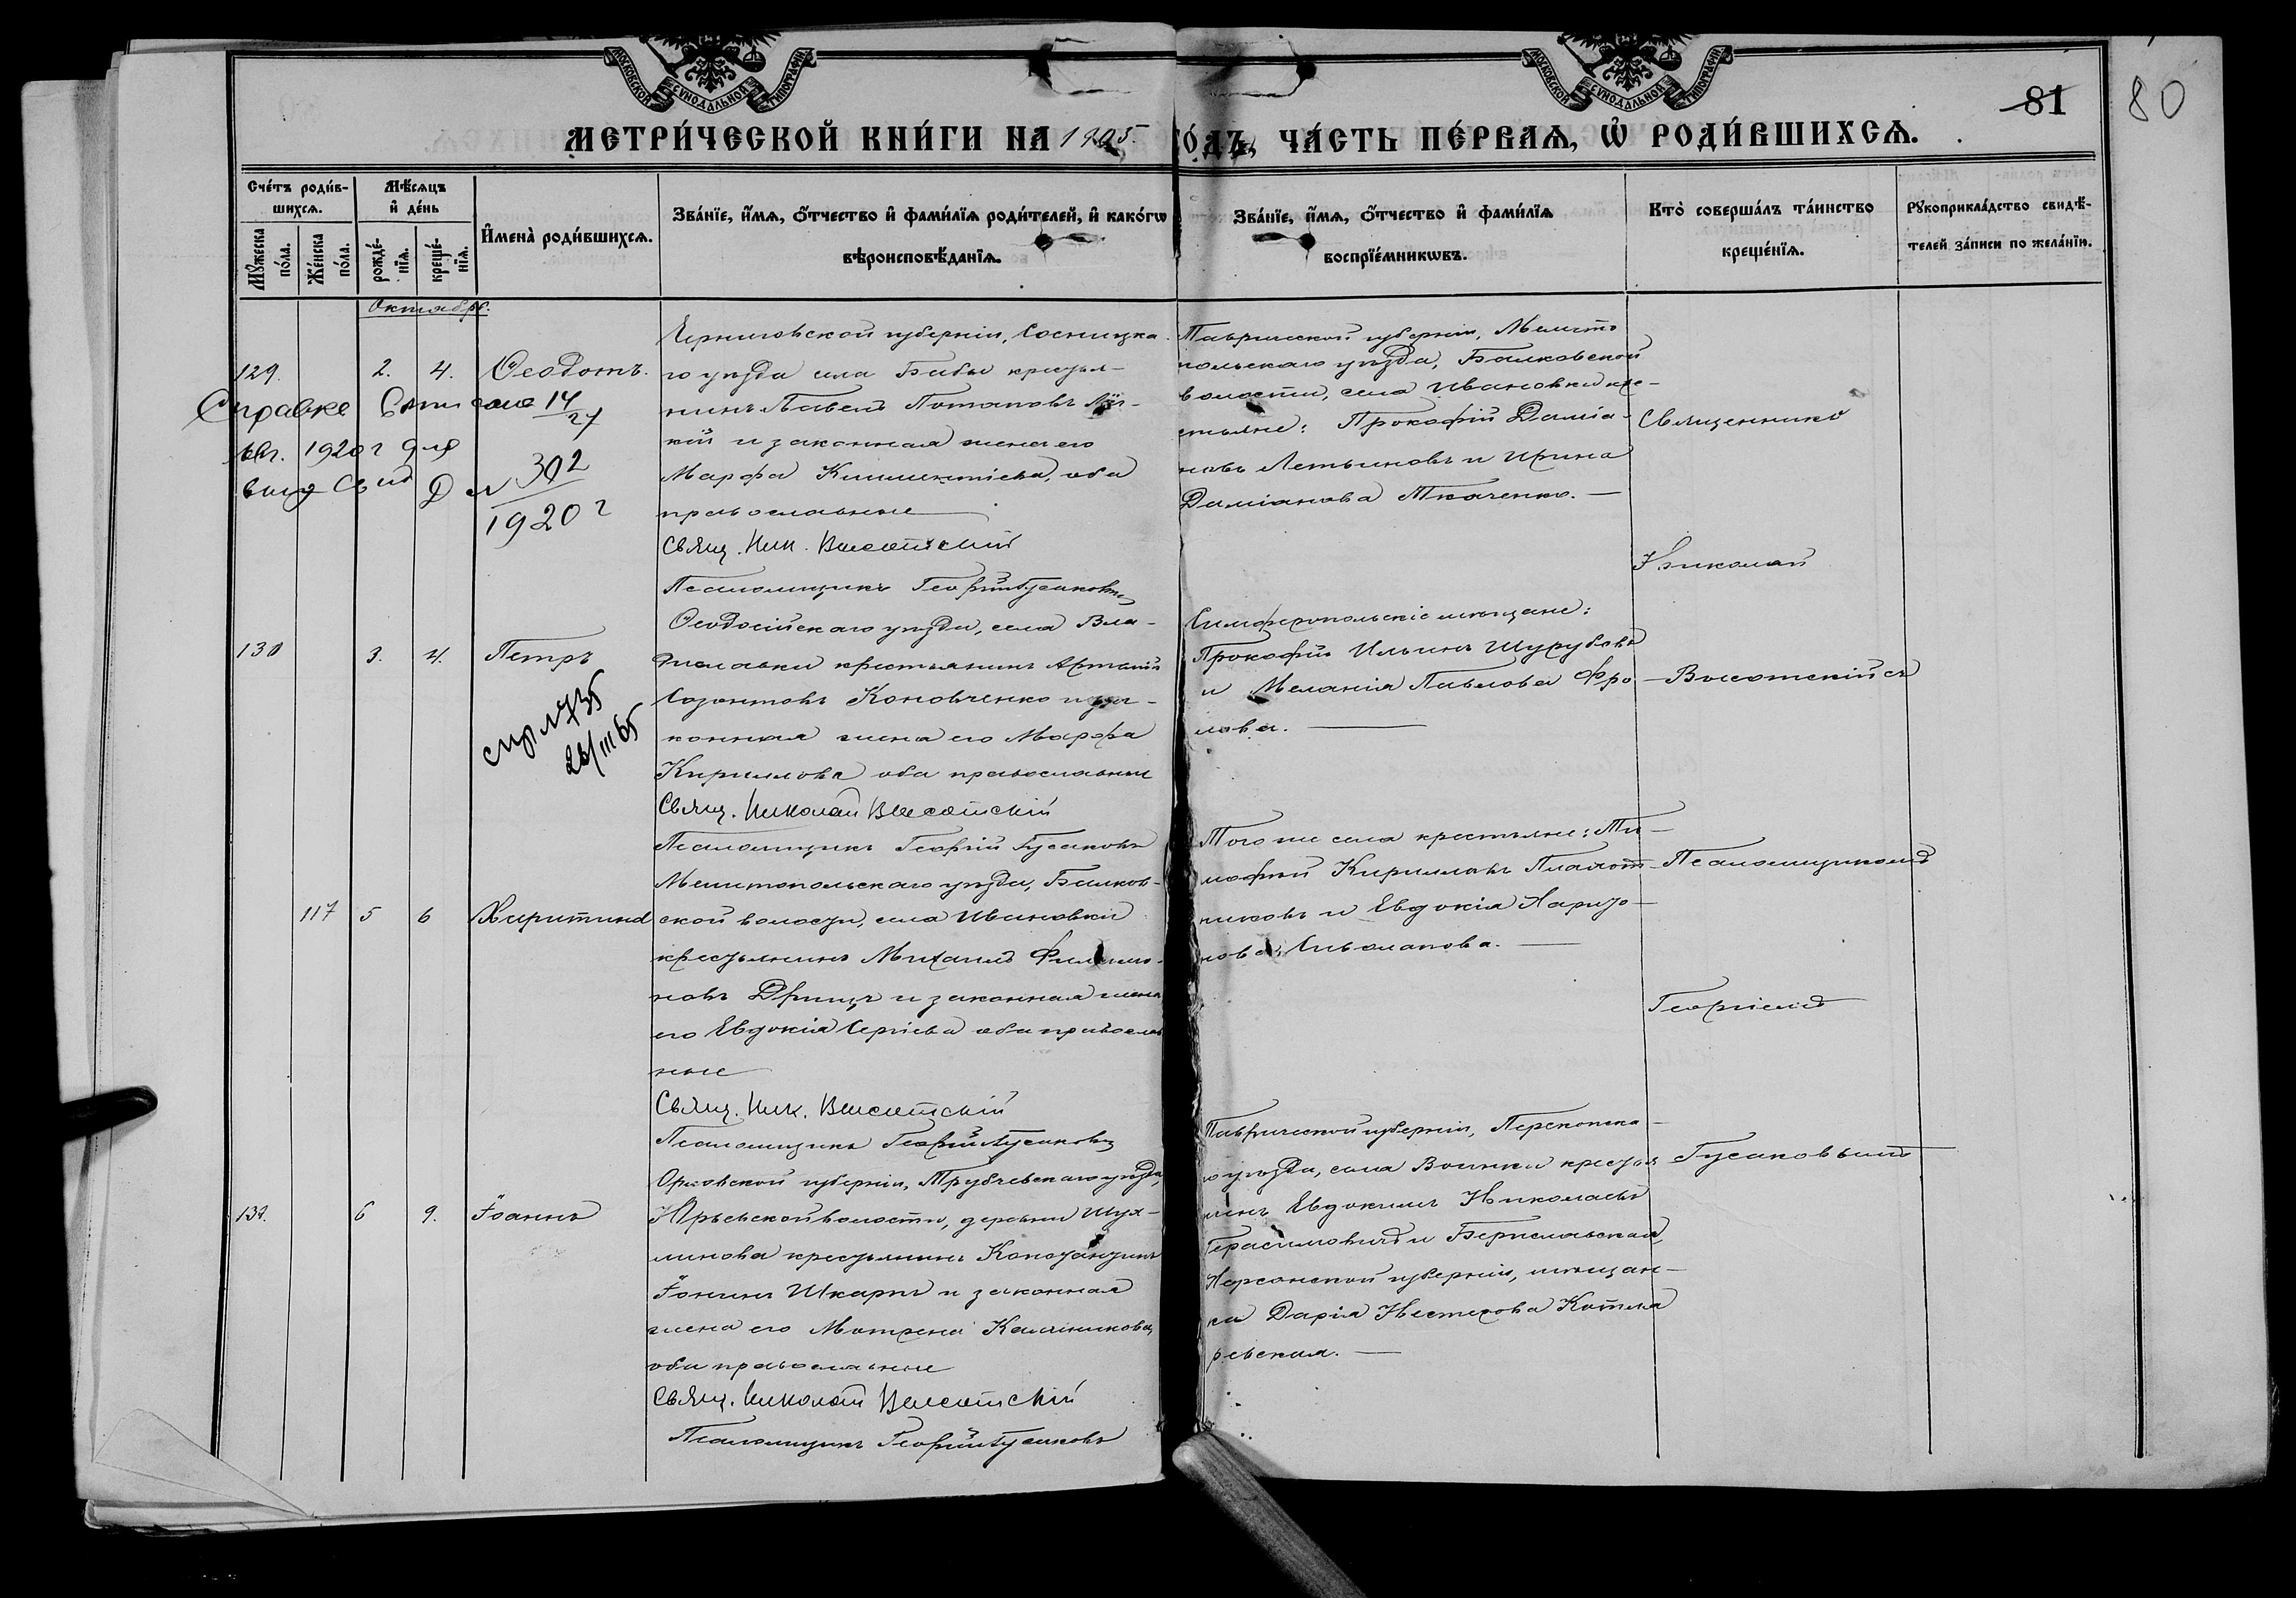 МОСКОВСКОЙ СѴНОДАЛЬНОЙ ТИПОГРАФІИ
МОСКОВСКОЙ СѴНОДАЛЬНОЙ ТИПОГРАФІИ
81
80
МЕТРИ́ЧЕСКОЙ КНИ́ГИ НА 1905 ГО́ДЪ, ЧА́СТЬ ПЕ́РВАѦ, Ѡ РОДИ́ВШИХСѦ.
Сче́тъ роди́в-
шихсѧ.
Мѣ́сѧцъ
и де́нь
И́мена̀ роди́вшихсѧ.
Зва́нїе, и́мѧ, о́тчество и фами́лїѧ роди́телей, и како́гѡ
вѣроисповѣ́данїѧ.
Зва́нїе, и́мѧ, о́тчество и фами́лїѧ
воспрїе́мникѡвъ.
Кто̀ соверша́лъ та́инство
креще́нїѧ.
Рꙋкоприкла́дство свидѣ́-
телей за́писи по жела́нїю.
Мꙋ́жеска
по́ла.
Же́нска
по́ла.
рожде́-
нїѧ.
креще́-
нїѧ.
Октябрь.
129. 2. 4. Ѳеодотъ.
Черниговской губерніи, Сосницка-
го уѣзда села Бабы крестья-
нинъ Павелъ Потаповъ
кій и законная жена его
Марфа Климентіева, оба
православные
Свящ. Ник. Высотскій
Псаломщикъ Георгій Гусаковъ
Таврической губерніи, Мелито-
польскаго уѣзда, Балковской
волости, села Ивановки кре-
стьяне: Прокофій Даміа-
новъ Летьиновъ и Ирина
Даміанова Ткаченко.
Священникъ
Николай
Высотскій съ
Псаломщикомъ
Георгіемъ
Гусаковымъ
Справка
1920 г для
302
1920 г
130 3. 4. Петръ
26/III 65
Ѳеодосійскаго уѣзда, села Вла-
диславки крестьянинъ Артемій
Созонтовъ Коновченко и за-
конная жена его Марфа
Кириллова оба православные
Свящ. Николай Высотскій
Псаломщикъ Георгій Гусаковъ
Симферопольскіе мѣщане:
Прокофій Ильинъ Шурубовъ
и Меланія Павлова Фро-
лова.
117 5 6 Харитина
Мелитопольскаго уѣзда, Балков-
ской волости, села Ивановки
крестьянинъ Михаилъ Филимо-
новъ Дрищъ и законная жена
его Евдокія Сергіева оба православ
ные
Свящ. Ник. Высотскій
Псаломщикъ Георгій Гусаковъ
Того же села крестьяне: Ти-
мофей Кирилловъ Плахот-
никовъ и Евдокія Ларіо-
нова Сиволапова.
131. 6 9. Іоаннъ
Орловской губерніи, Трубчевскаго уѣзда,
Юрьевской волости, деревни Шуа-
линова крестьянинъ Константинъ
Іонинъ Шкаринъ и законная
жена его Матрена Калинникова,
оба православные
Свящ. Николай Высотскій
Псаломщикъ Георгій Гусаковъ
Таврической губерніи, Перекопска-
го уѣзда, села Воинки крестья
нинъ Евдокимъ Николаевъ
Герасимовичъ и Бериславская,
Херсонской губерніи, мѣщан-
ка Дарія Нестерова Котля
ревская.